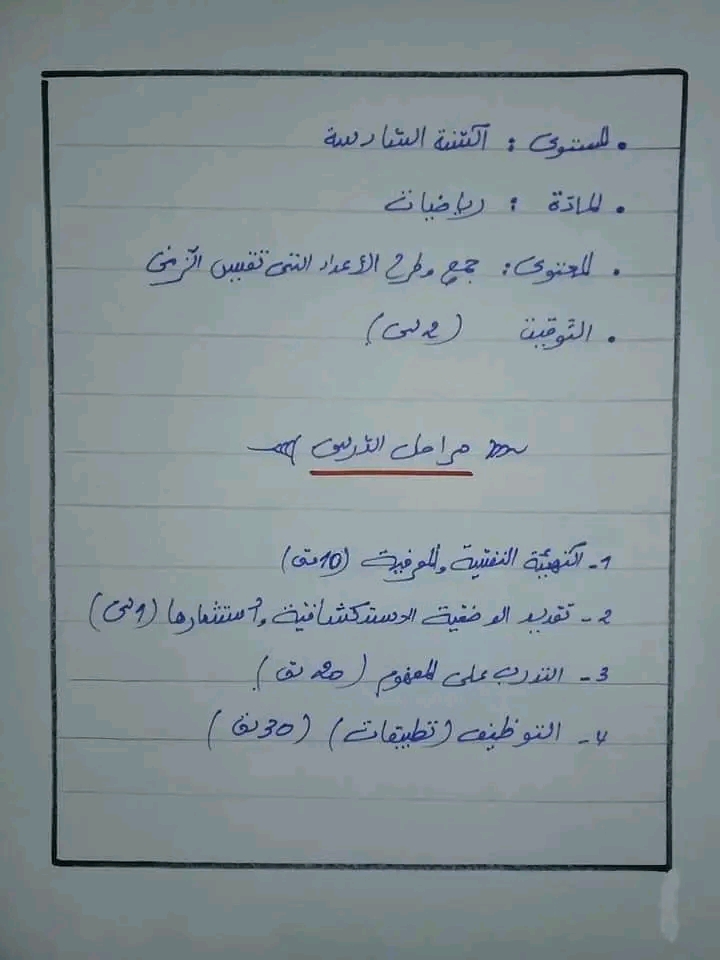 • المستوى : السّنة السّادسة
• المادّة : رياضيات
• المحتوى : جمع وطرح الأعداد التي تقيس الزّمن
• التّوقيت (2 س)
مراحل الدّرس
1- التّهيئة النّفسية والمعرفية (10 د)
2- تقديم الوضعية الاستكشافية واستثمارها (1 س)
3- التدرب على المفهوم (20 د)
4- التوظيف (تطبيقات) (30 د)